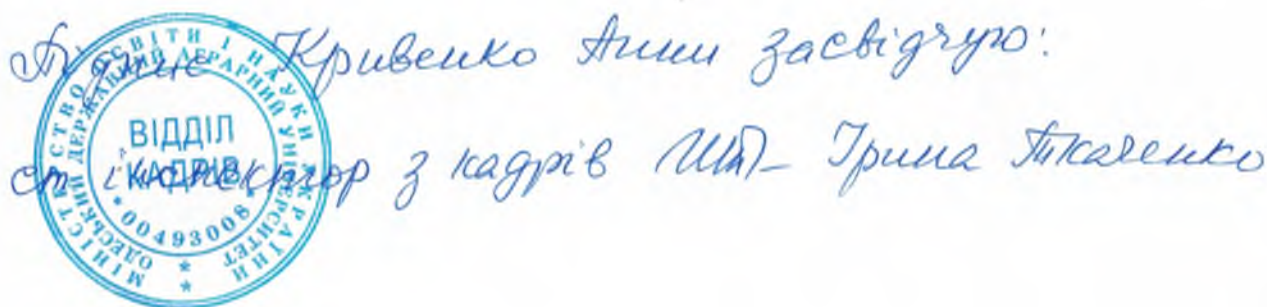 Підпис Кривенко Анни засвідчую:
ст. інспектор з кадрів Ірина Ткаченко
МІНІСТЕРСТВО ОСВІТИ І НАУКИ УКРАЇНИ
ОДЕСЬКИЙ ДЕРЖАВНИЙ АГРАРНИЙ УНІВЕРСИТЕТ
ВІДДІЛ
КАДРІВ
* 00493008 *